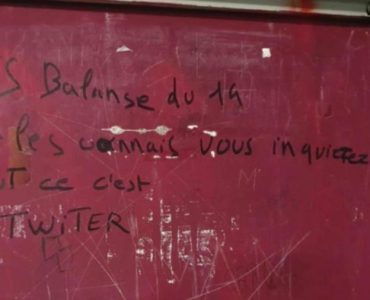 S Balanse du 19
les connais vous inquietez
UT ce c'est
TWITER